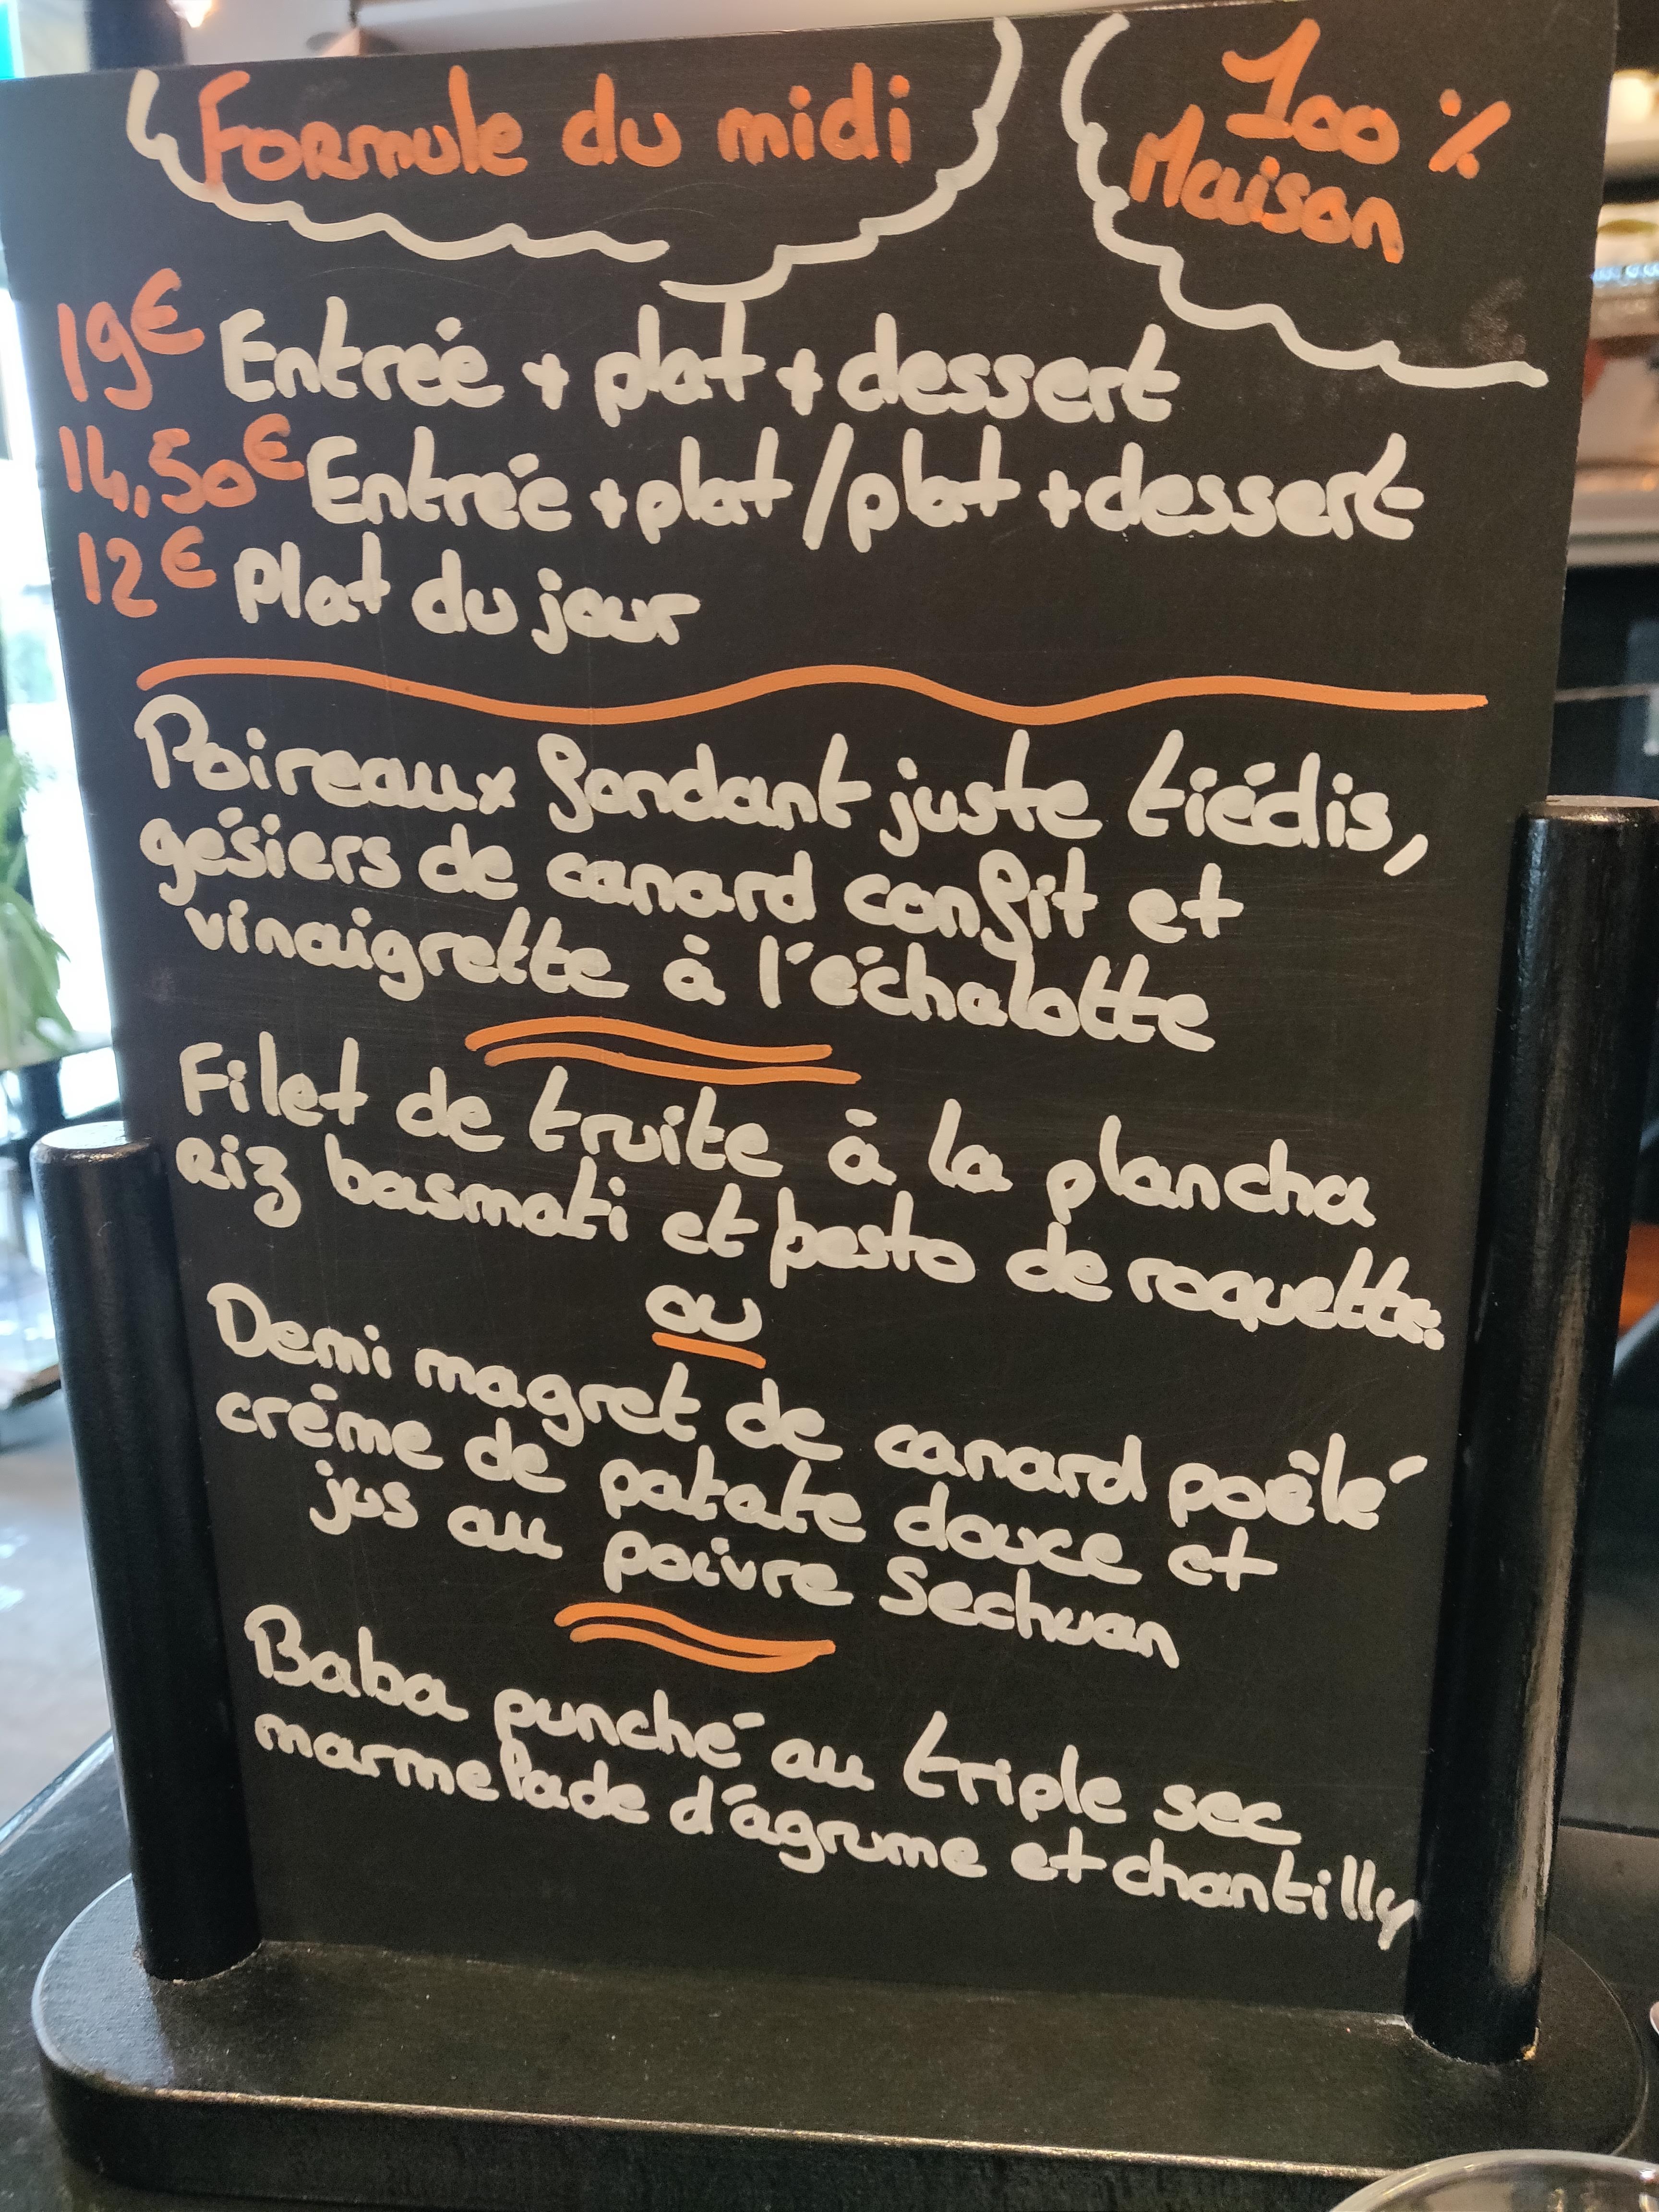 Formule du midi
100 %
Maison
19€ Entrée + plat + dessert
14,50€ Entrée + plat / plat + dessert
12€ Plat du jour
Poireaux fondant juste tiédis,
gésiers de canard confit et
vinaigrette à l'échalotte
Filet de truite à la plancha
Riz basmati et pesto de roquette.
ou
Demi magret de canard poêlé
crème de patate douce et
jus au poivre Sechuan
Baba punché au triple sec
marmelade d'agrume et chantilly